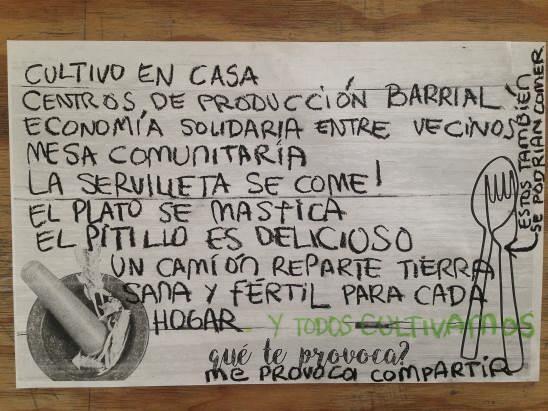 CULTIVO EN CASA
CENTROS DE PRODUCCIÓN BARRIAL
ECONOMÍA SOLIDARIA ENTRE VECINOS
MESA COMUNITARÍA
LA SERVILLETA SE COME!
EL PLATO SE MASTICA
EL PITILLO ES DELICIOSO
UN CAMIÓN REPARTE TIERRA
SANA Y FÉRTIL PARA CADA
HOGAR. Y TODOS CULTIVAMOS
qué te provoca?
ME PROVOCA COMPARTIR
ESTOS TAMBIÉN
SE PODRÍAN COMER